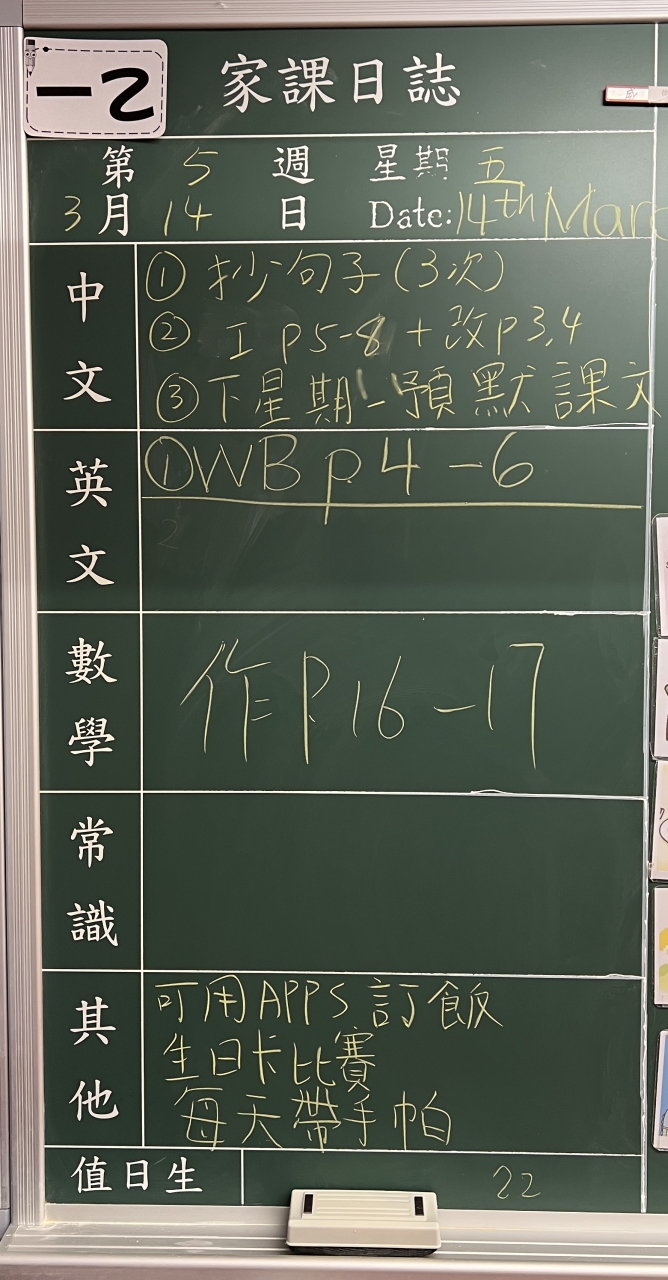 一乙
家課日誌
第 5 週 星期 五
3 月 14 日 Date: 14th Marc
中文
① 抄句子(3次)
② 工 p5-8 + 改p3,4
③ 下星期一預默課文
英文
① WB p 4-6
數學
作 P.16-17
常識
其他
可用APPS訂飯
生日卡比賽
每天帶手帕
值日生 22